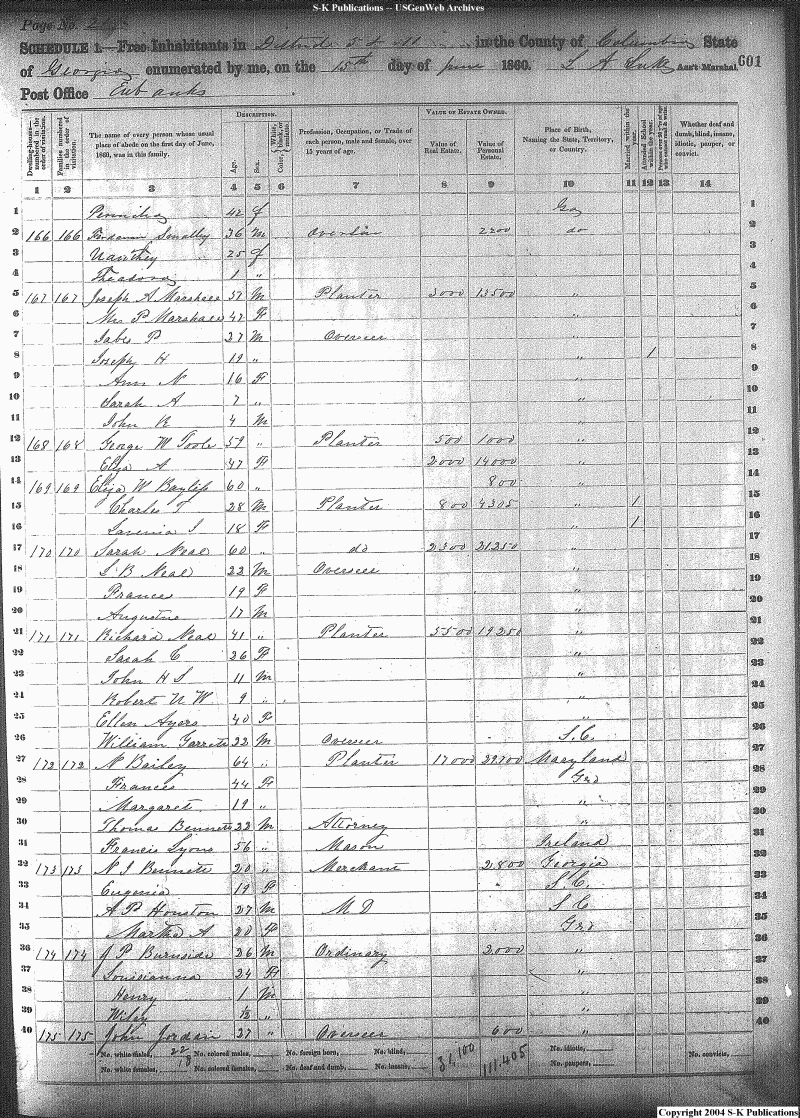 S-K Publications -- USGenWeb Archives
Page No. 2
SCHEDULE 1.—Free Inhabitants in Districts 5 & 11 in the County of Columbia State
of Georgia enumerated by me, on the 15th day of June 1860. L A Luke Ass't Marshal. 601
Post Office Eubanks
Dwelling-houses— numbered in the order of visitation.
Families numbered in the order of visitation.
The name of every person whose usual place of abode on the first day of June, 1860, was in this family.
DESCRIPTION.
Age.
Sex.
Color, { White, black, or mulatto.
Profession, Occupation, or Trade of each person, male and female, over 15 years of age.
VALUE OF ESTATE OWNED.
Value of Real Estate.
Value of Personal Estate.
Place of Birth, Naming the State, Territory, or Country.
Married within the year.
Attended School within the year.
Persons over 20 y'rs of age who cannot read & write.
Whether deaf and dumb, blind, insane, idiotic, pauper, or convict.
1 2 3 4 5 6 7 8 9 10 11 12 13 14
1 42 f Ga 1
2 166 166 Smalley 36 M Overseer 2200 do 2
3 25 f 3
4 Theadora 1 " 4
5 167 167 Joseph A Marshall 57 M Planter 3000 13500 " 5
6 Mrs P Marshall 47 F " 6
7 Jabes P 27 M Overseer " 7
8 Joseph H 19 " " 1 8
9 Ann N 16 F " 9
10 Sarah A 7 " " 10
11 John R 4 M " 11
12 168 168 George W Toole 59 " Planter 500 1000 " 12
13 Eliza A 47 F 2000 14000 " 13
14 169 169 Eliza W Bayliss 60 " 800 " 14
15 Charles T 28 M Planter 800 4305 " 1 15
16 Lavenia S 18 F " 1 16
17 170 170 Sarah Neal 60 " do 2300 21250 " 18
18 S B Neal 22 M Overseer " 18
19 Frances 19 F " 19
20 Augustus 17 M " 20
21 171 171 Richard Neal 41 " Planter 5500 19250 " 21
22 Sarah C 26 F " 22
23 John H S 11 M " 23
24 Robert N W 9 " " 24
25 Ellen Ayers 40 F " 25
26 William Garrett 22 M Overseer S.C. 26
27 172 172 N Bailey 64 " Planter 17000 29700 Maryland 27
28 Frances 44 F Geo 28
29 Margaret 19 " " 29
30 Thomas Bennett 22 M Attorney " 30
31 Francis Lyons 56 " Mason Ireland 31
32 173 173 N J Bennett 20 " Merchant 2,800 Georgia 32
33 Eugenia 19 F S.C. 33
34 A P Houston 27 M M D S C 34
35 Martha A 20 F Geo 35
36 174 174 J P Burnside 26 M Ordinary 2000 " 36
37 Louisianna 24 F " 37
38 Henry 1 M " 38
39 Wiley " " 39
40 175 175 John Jordan 27 " Overseer 600 " 40
No. white males, 22 No. colored males, No. foreign born, No. blind, 31,100 111,405 No. idiotic, No. convicts,
No. white females, 18 No. colored females, No. deaf and dumb, No. insane, No. paupers,
Copyright 2004 S-K Publications